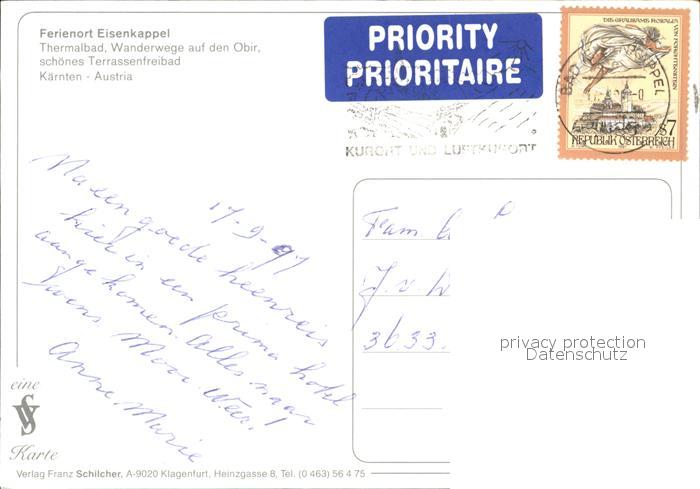 Ferienort Eisenkappel
Thermalbad, Wanderwege auf den Obir,
schönes Terrassenfreibad
Kärnten - Austria
PRIORITY
PRIORITAIRE
DIE GRAUSAME ROSALIA
VON FORCHTENSTEIN
S7
REPUBLIK ÖSTERREICH
BAD
KAPPEL
KURORT UND LUFTKURORT
17-9-97
Na een goede heenreis
hier in een prima hotel
aangekomen. Alles naar
wens. Mooi Weer!
Anne Marie
Fam
J. v.
3633
privacy protection
Datenschutz
eine
VS
Karte
Verlag Franz Schilcher, A-9020 Klagenfurt, Heinzgasse 8, Tel. (0 463) 56 4 75